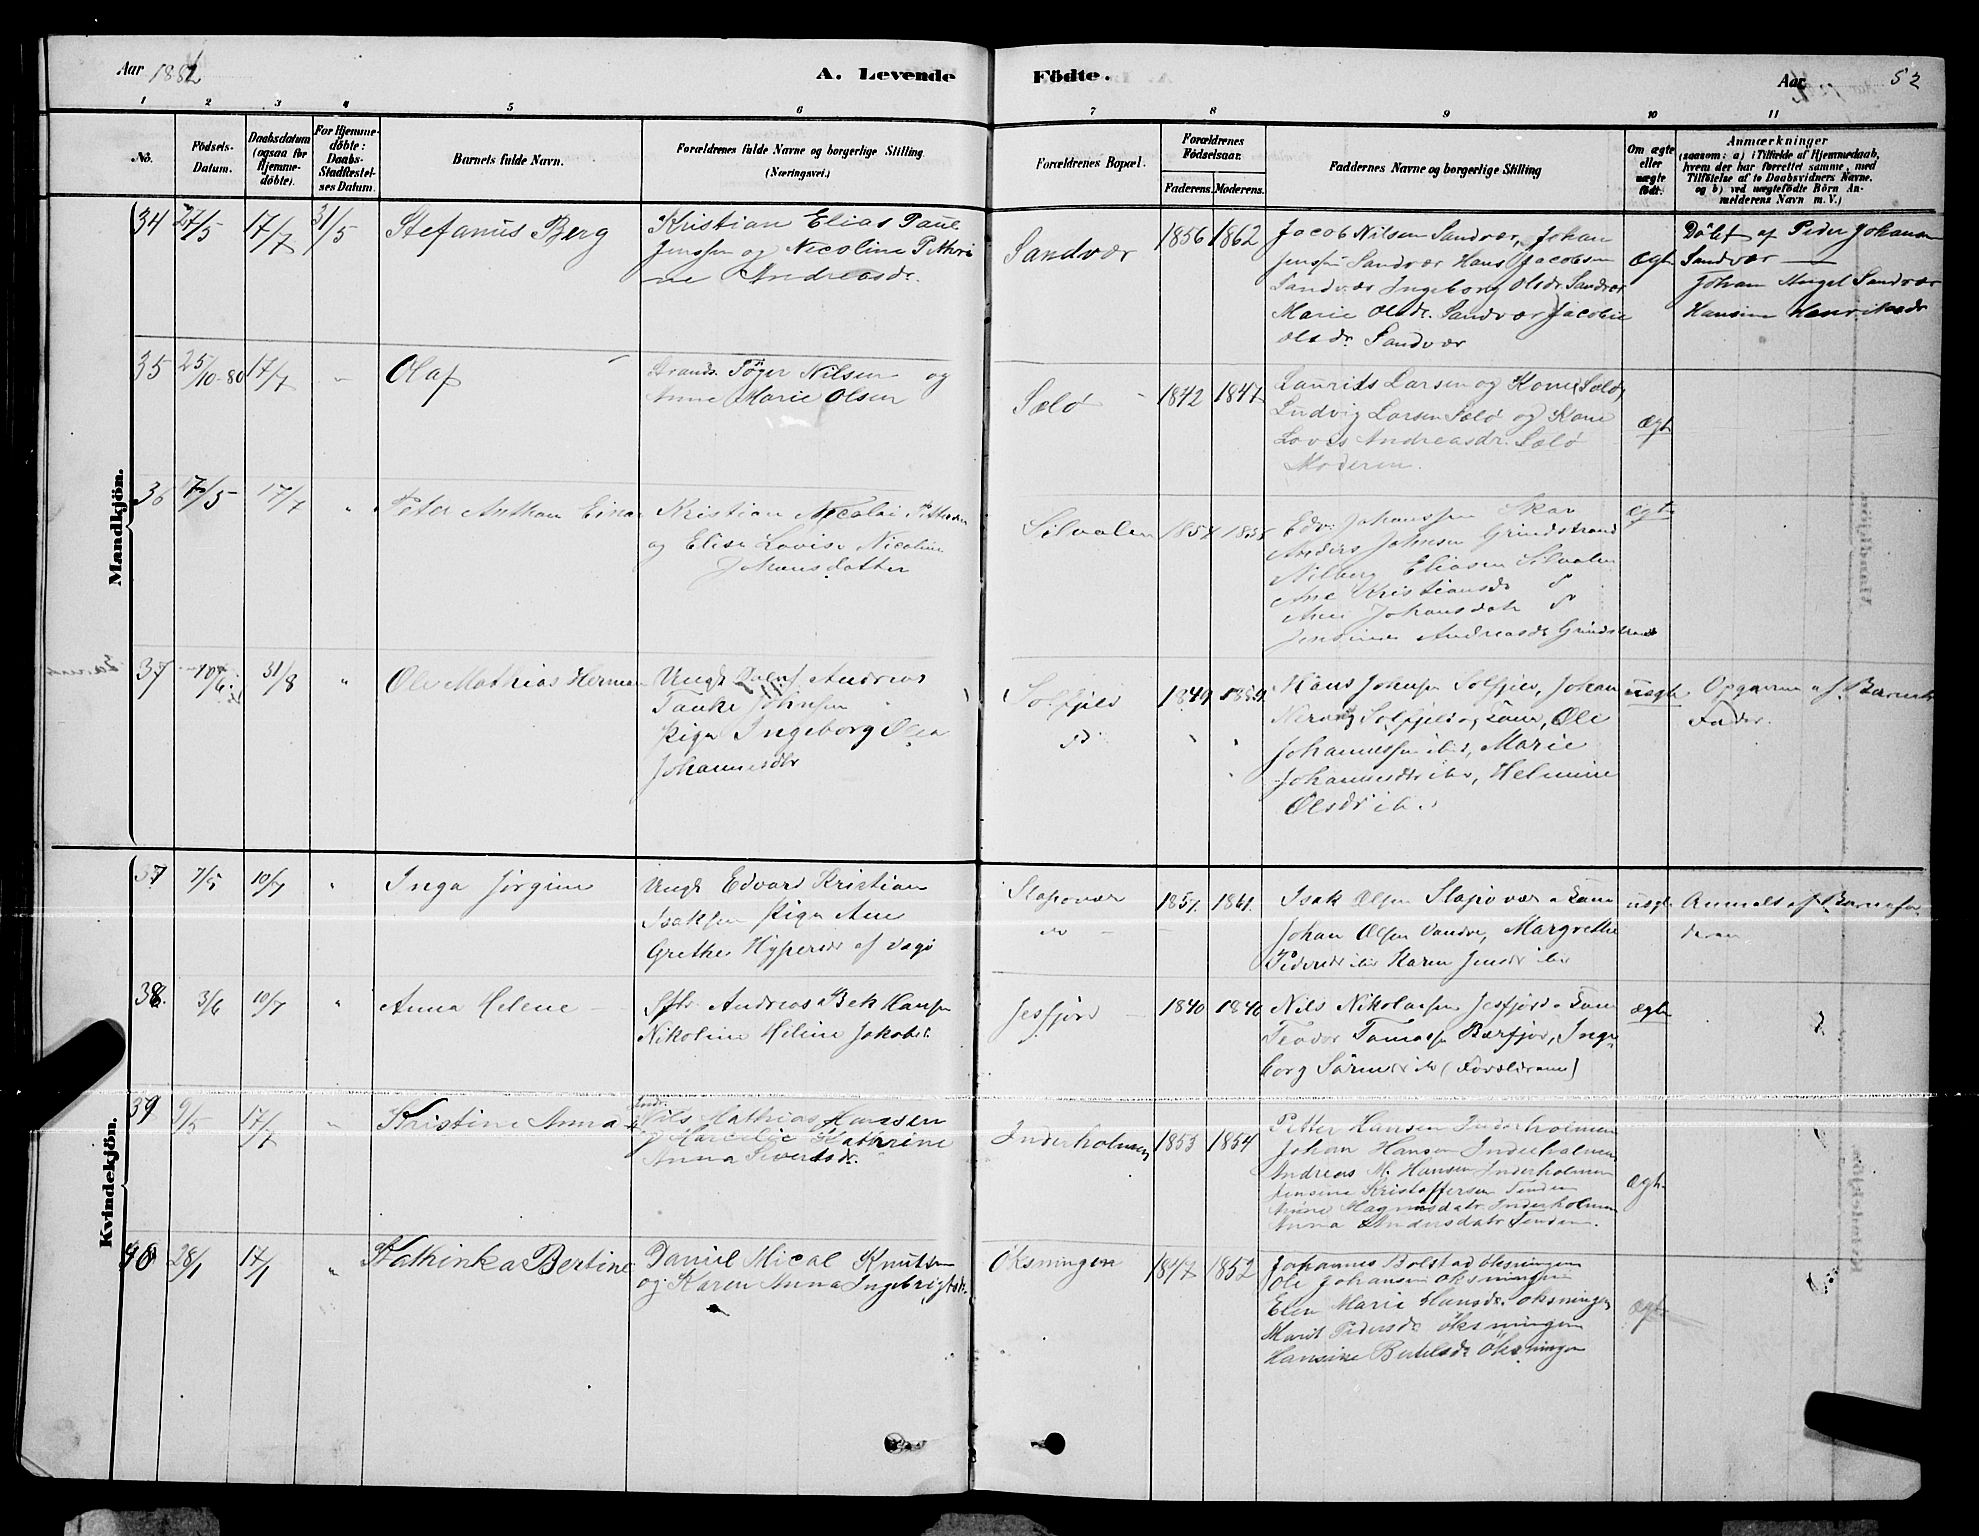 Aar 1882
A. Levende Födte.
Aar
52
1 2 3 4 5 6 7 8 9 10 11
No.
Födsels-Datum.
Daabsdatum (ogsaa for Hjemme-döbte).
For Hjemme-döbte: Daabs-Stadfæstel-ses Datum.
Barnets fulde Navn.
Forældrenes fulde Navne og borgerlige Stilling (Næringsvei.)
Forældrenes Bopæl.
Forældrenes Födselsaar.
Faderens. Moderens.
Faddernes Navne og borgerlige Stilling
Om ægte eller uægte födt.
Anmærkninger
(saasom: a) i Tilfælde af Hjemmedaab,
hvem der har forrettet samme, med
Tilföielse af to Daabsvidners Navne,
og b) ved uægtefödte Börn An-
melderens Navn m. V.)
Mandkjön.
34 27/5 17/7 31/5 Stefanus Berg
Kristian Elias Paul
Jenssen og Nicoline Pethri
ne Andreasdr.
Sandvær 1856 1862
Jacob Nilsen Sandvær, Johan
Jenssen Sandvær Hans Jacobsen
Sandvær Ingeborg Olsdr Sandvær
Marie Olsdr. Sandvær Jacobie
Olsdr. Sandvær
Ægt.
Döbt af Peder Johansen
Sandvær
Johan Sandvær
Hansine Henriksdr
35 25/10-80 17/7 " Olaf
Strands. Töger Nilsen og
Anne Marie Olsen
Sælö 1842 1847
Laurids Larsen og Kone Sælö,
Ludvig Larsen Sælö og Kone
Andreasdr. Sælö
Moderen.
Ægt
36 17/5 17/7 " Peter Anthon Einar
Kristian Nicolai Pettersen
og Elise Lovise Nicoline
Johansdatter
Silvalen 1857
Edv. Johanssen Skar
Anders Johnsen Grindstrand
Nilberg Eliasen Silvalen
Ane Kristiansdr do
Ane Johansdatr do
Jensine Andreasdr Grindstrand
ægt
37 10/6 31/8 " Ole Mathias Herman
Ungk Andreas
Tanke Johnsen
Pige Ingeborg Olea
Johannesdtr
Solfjeld 1849 1859
do
Hans Johnsen Solfjeld, Johan
Solfjeld og Kone, Ole
Johannessen ibd, Marie
Johannesdtr ibd, Helmine
Olsdr ib.
uægte
Opgaven af Barnets
Fader.
Kvindekjön.
37 7/5 10/7 " Inga Jörgine
Ungk Edvard Kristian
Isaksen Pige Ane
Grethe af Vægö
Slaposvær 1857. 1861.
do
Isak Olsen
Johan Olsen Vandve, Margrethe
Pedersdr ibd Karen Jensdr ibd
uægt.
Anmeldt af Barnefa-
deren
38. 3/6 10/7 " Anna Helene
Andreas Bek Hansen
Nikoline Heline Jakobs
Jesfjord 1840 1840
Nils Nikolaisen Jesfjord
Teodor Tomassen Bærfjor, Inge-
borg Sörensdr ibd (Forældrene)
ægte
39 9/5 17/7 " Kristine Anna
Nils Mathias Hanssen
og Marcelie Kathrine
Anna Sivertsdr.
Inderholmen 1853 1854
Petter Hansen Inderholmen
Johan Hansen Inderholmen
Andreas M. Hansen Inderholmen
Jensine Kristoffersen Tenden
Anne Magnusdatr Inderholmen
Anna Andersdatr Tenden.
Ægt.
40 28/1 17/7 " Kathinka Bertine
Daniel Mical Knutsen
og Karen Anna Ingebrigtsdr.
Öksningen 1847 1852
Johannes Bolstad Öksningen
Ole Johansen Öksningen
Elen Marie Hansdr. Öksningen
Marit Pedersdr Öksningen
Hansine Bertelsdr Öksningen
Ægt